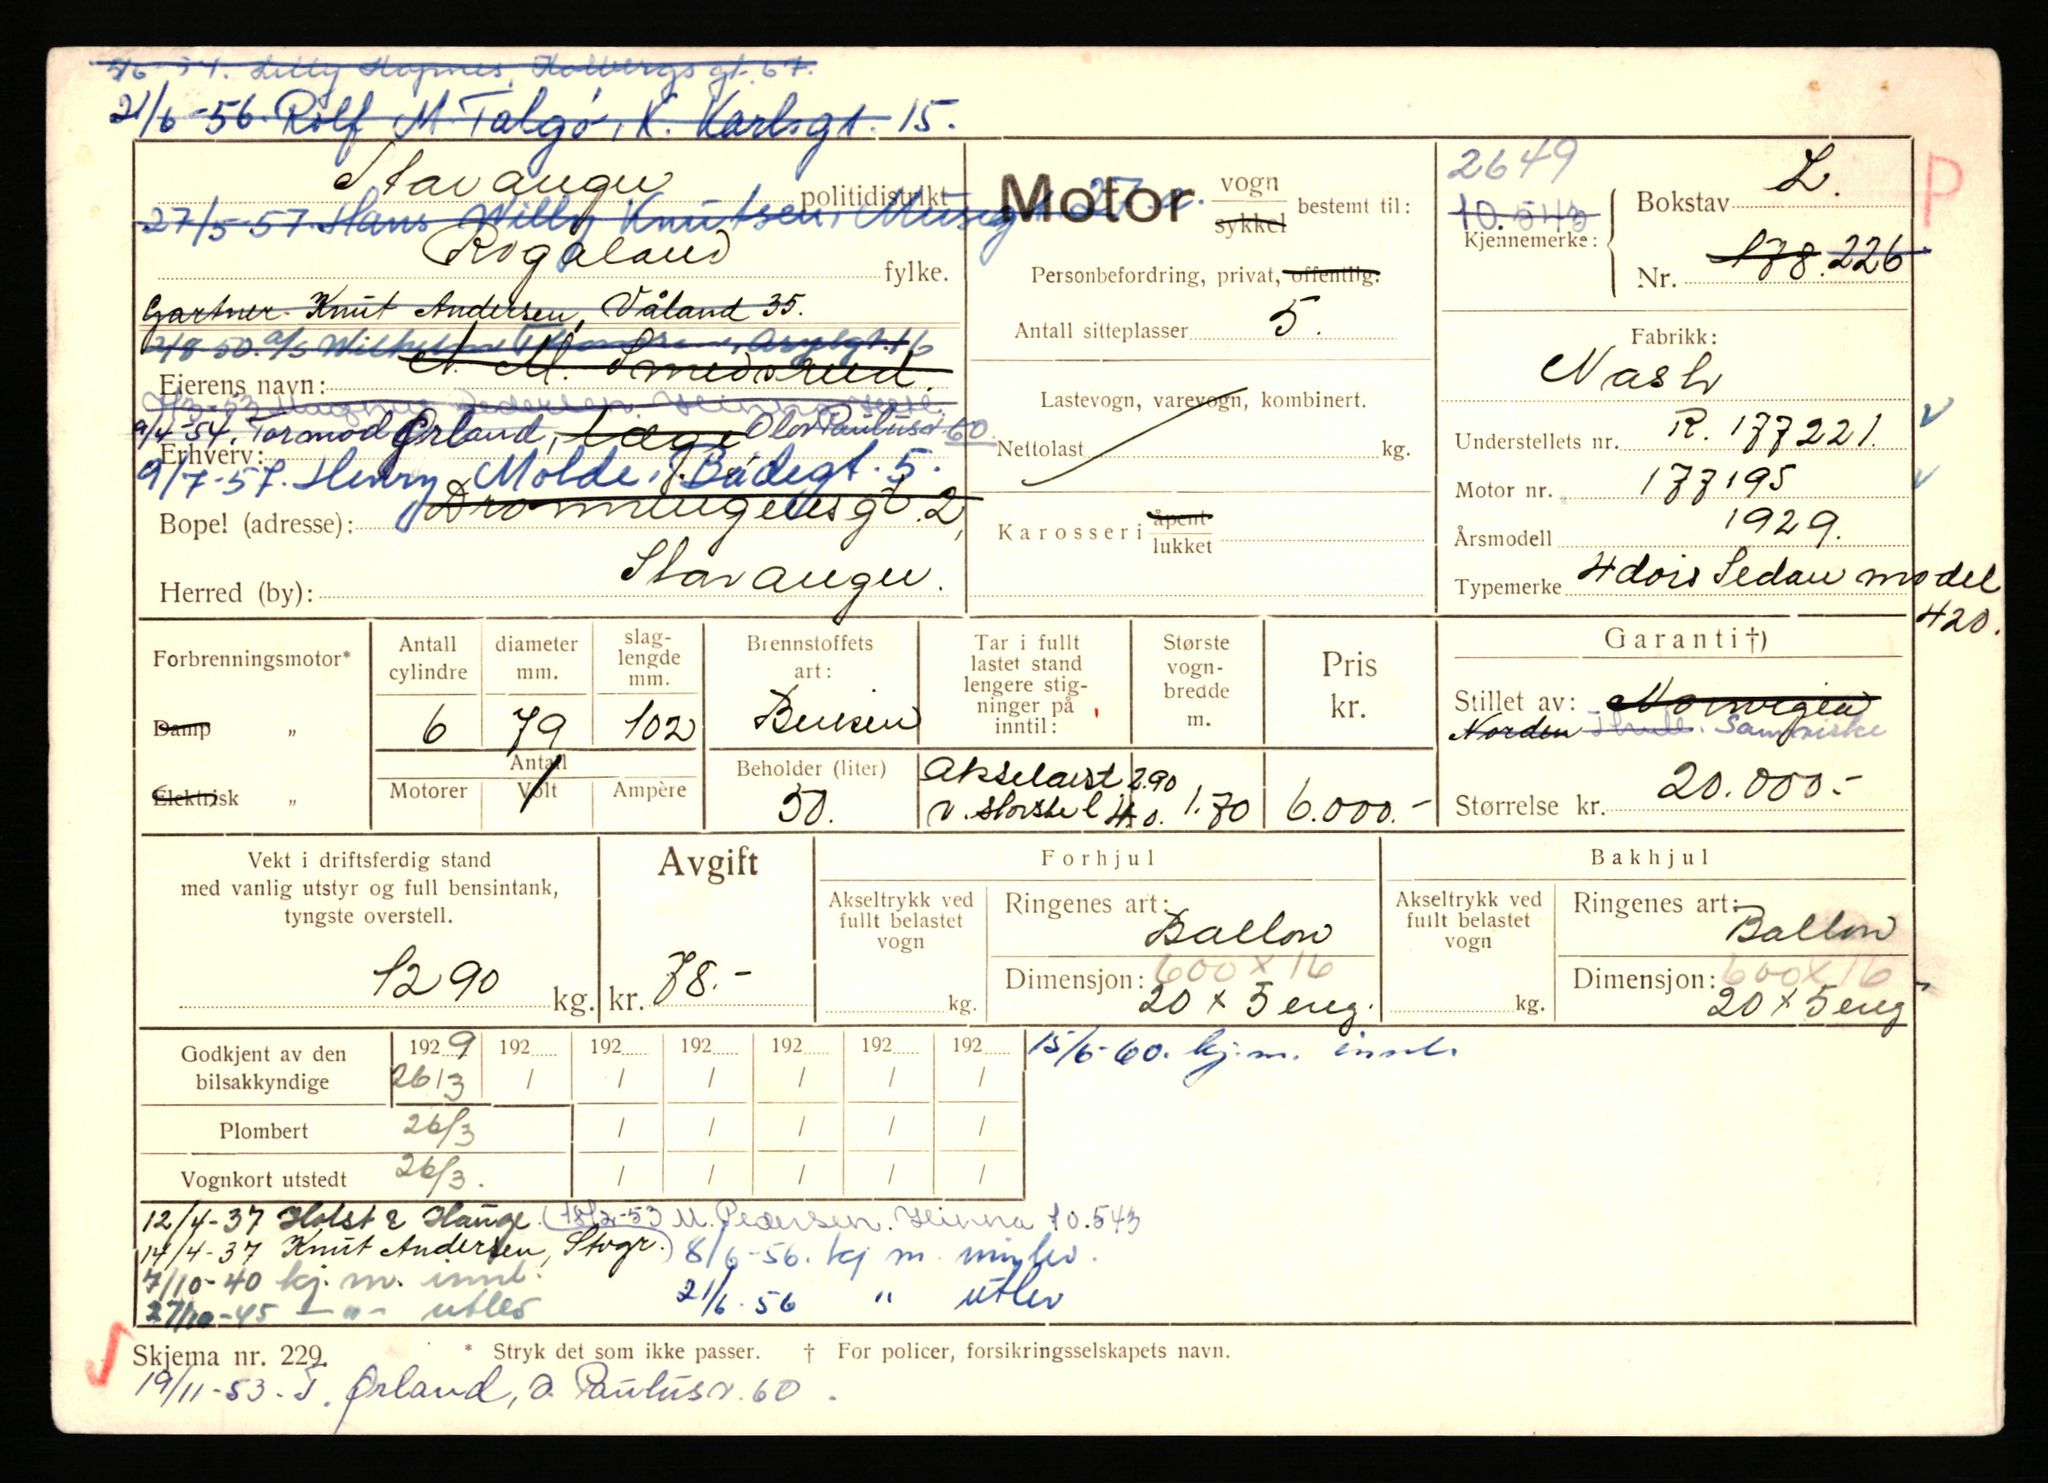 5/6-54. Lilly Hognes, Holbergsgt. 67.
21/6-56. Rolf M Talgø, K. Karlsgt. 15.
Stavanger politidistrikt
27/5-57. Hans Willy Knutsen, Musegt 27.
Rogaland fylke.
Gartner Knut Andersen, Våland 35.
2/8-50. a/s Wilhelm
Eierens navn: A. M. Smedsrud.
9/4-54. Tormod Ørland, Læge Olav Paulus v. 60
Erhverv:
9/7-57. Henry Molde, J. Bådegt. 5.
Bopel (adresse): Dronningensgt. 2,
Herred (by): Stavanger.
Motor vogn sykkel bestemt til:
Personbefordring, privat, offentlig:
Antall sitteplasser 5.
Lastevogn, varevogn, kombinert.
Nettolast kg.
Karosseri åpent lukket
2649
10.543
Kjennemerke:
Bokstav L.
Nr. 178.226
P
Fabrikk:
Nash
Understellets nr. R. 177221.
Motor nr. 177195
Årsmodell 1929.
Typemerke 4 dørs Sedan model
420.
Forbrenningsmotor*
Damp „
Elektrisk „
Antall cylindre
6
diameter mm.
79
slag-lengde mm.
102
Antall
Motorer Volt Ampère
Brennstoffets art:
Bensin
Beholder (liter)
50.
Tar i fullt
lastet stand
lengere stig-
ninger på
inntil:
Akselavst 2.90
Største
vogn-
bredde
m.
1.70
Pris
kr.
6.000.-
Garanti †)
Stillet av: Norwegian
Norden Samvirke
Størrelse kr. 20.000.-
Vekt i driftsferdig stand
med vanlig utstyr og full bensintank,
tyngste overstell.
1290 kg.
Avgift
kr. 78.-
Forhjul
Akseltrykk ved
fullt belastet
vogn
kg.
Ringenes art: Ballon
Dimensjon: 600 x 16
20 x 5 eng.
Bakhjul
Akseltrykk ved
fullt belastet
vogn
kg.
Ringenes art: Ballon
Dimensjon: 600 x 16
20 x 5 eng
Godkjent av den
bilsakkyndige
1929 192 192 192 192 192 192
26/3 / / / / / /
Plombert 26/3 / / / / /
Vognkort utstedt 26/3. / / / / /
15/6-60. kj.m. innl.
12/4-37 Holst & Hauge (18/2-53 M. Pedersen. Hinna 10.543
14/4-37 Knut Andersen, Stvgr.) 8/6-56. kj m. innlev.
7/10-40 kj. m. innl. 21/6-56 „ utlev
27/10-45 — „ — utlev
Skjema nr. 229. * Stryk det som ikke passer. † For policer, forsikringsselskapets navn.
19/11-53. T. Ørland, O. Paulus v. 60.